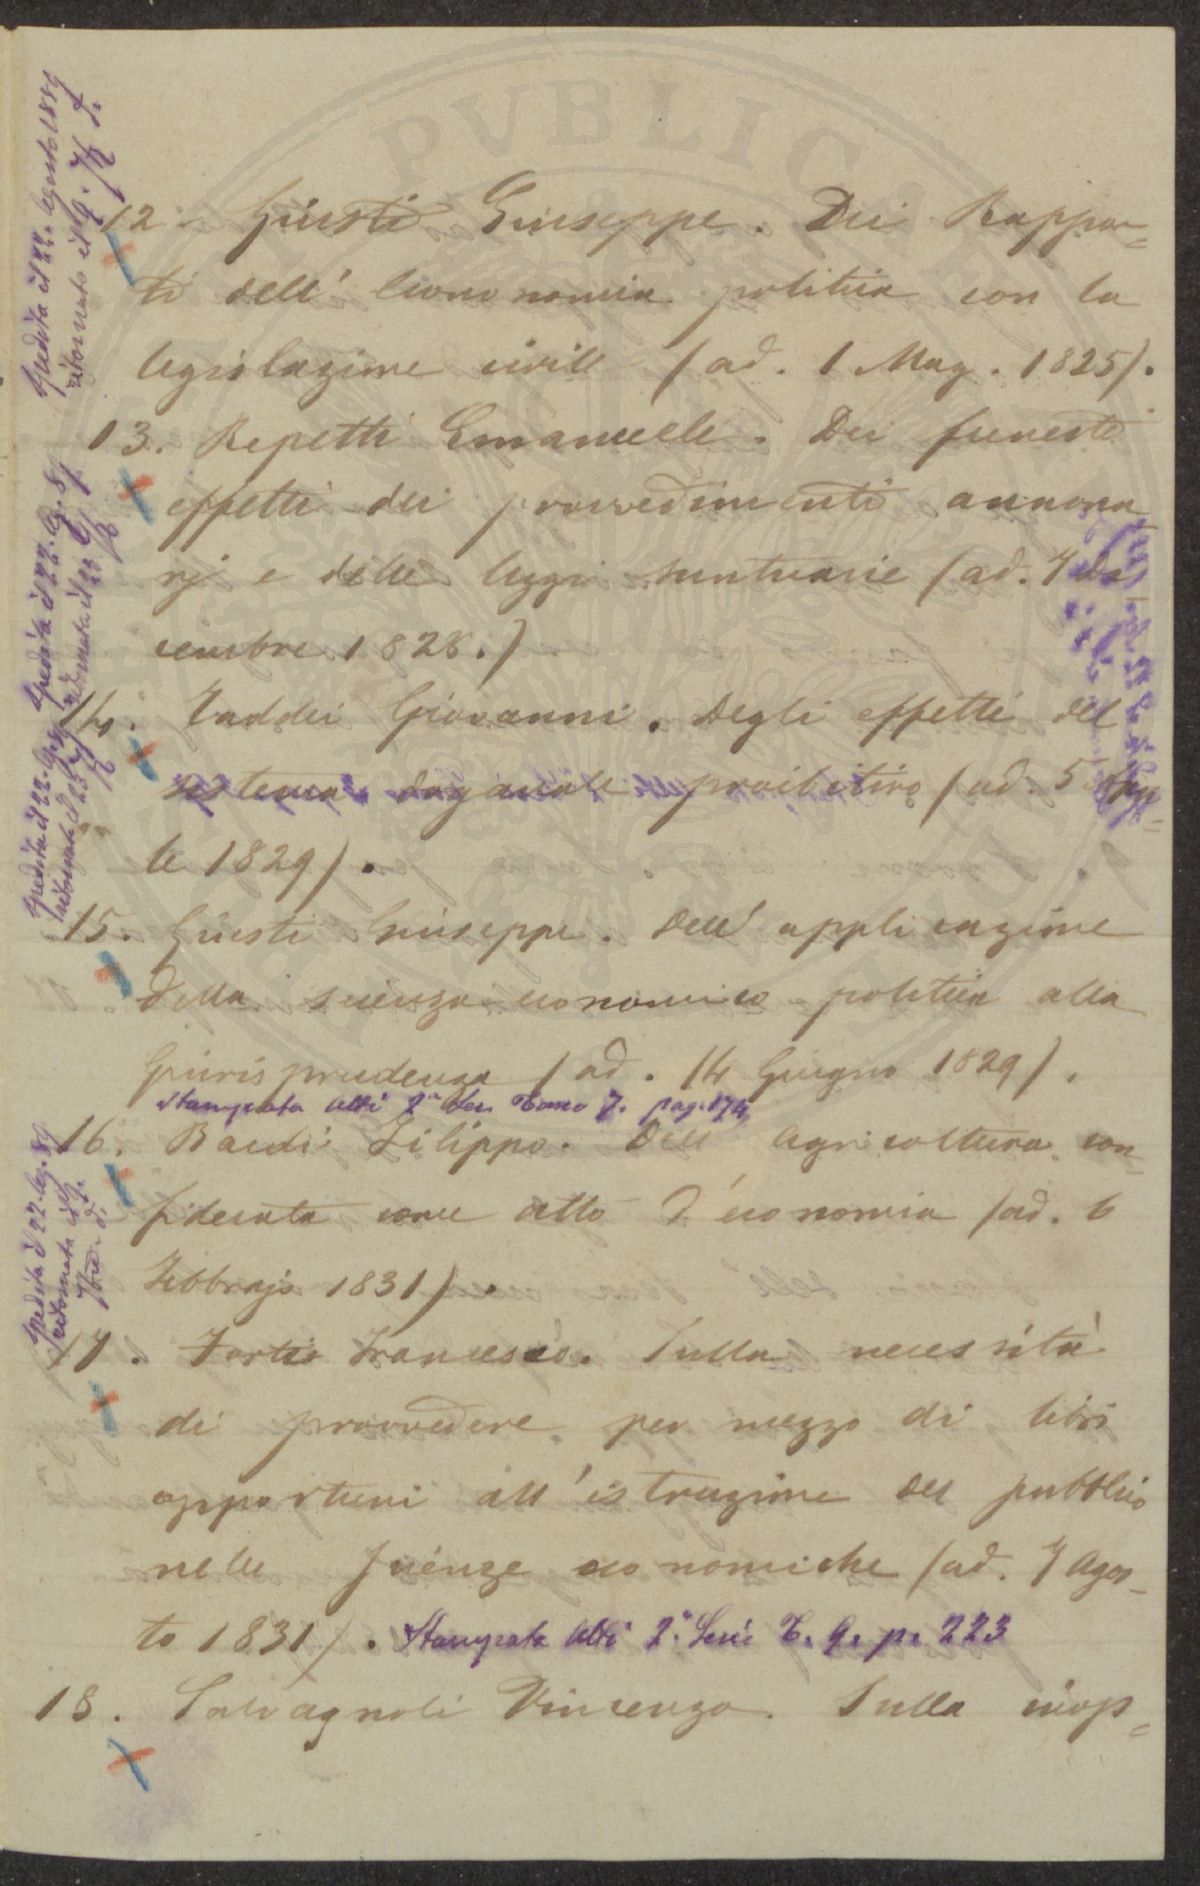 12. Giusti Giuseppe. Dei Rappor=
ti dell' Economia politica con la
legislazione civile (ad. 1 Mag. 1825).
13. Repetti Emanuele. Dei funesti
effetti dei provvedimenti annona
rj e delle leggi suntuarie (ad. 7 De
cembre 1828.)
14. Taddei Giovanni. Degli effetti del
sistema doganale proibitivo (ad. 5 Apri=
le 1829).
15. Giusti Giuseppe. Dell' applicazione
della scienza economico politica alla
Giurisprudenza (ad. 14 Giugno 1829).
Stampata Atti 2a Ser. Tomo 7. pag. 174
16. Baldi Filippo. Dell' Agricoltura con=
siderata come atto d'economia (ad. 6
Febbrajo 1831).
17. Forti Francesco. Sulla necessità
di provvedere per mezzo di libri
opportuni all'istruzione del pubblico
nelle scienze economiche (ad. 7 Agos=
to 1831). Stampata Atti 2a Serie T. 9. p. 223
18. Salvagnoli Vincenzo. Sulla inop=
Spedita il 22. Agosto 1889
ritornato il
Spedita il 22. Ag. 89
ritornata il
Spedita il 22. Ag. 89
ritornata il
Spedita il 22. Ag. 89
ritornata il
PVBLICAE